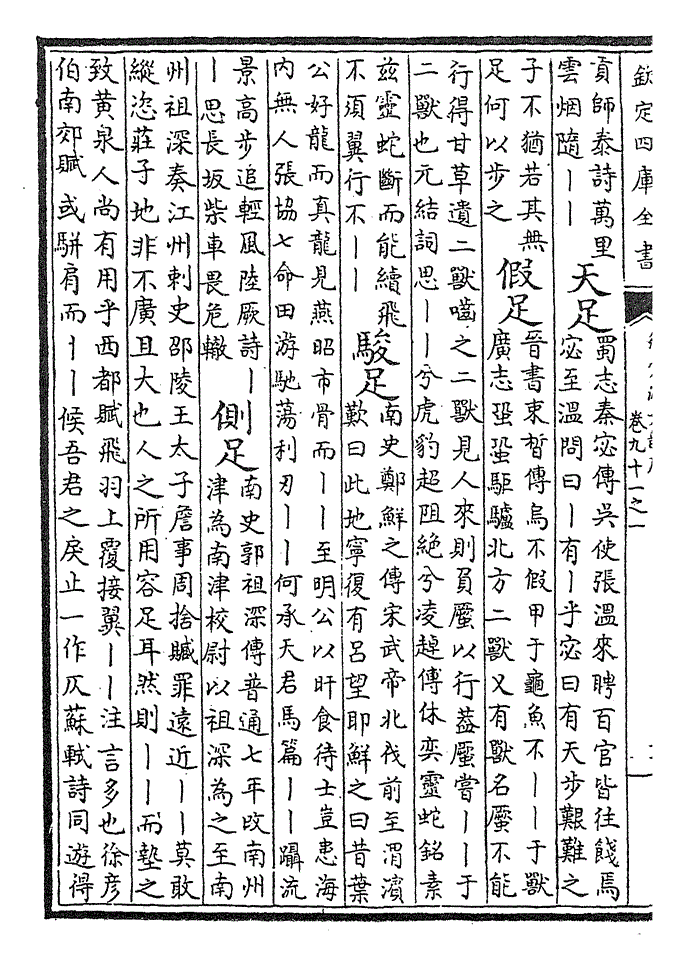 欽定四庫全書
卷九十一之一
貢師泰詩萬里
雲烟隨丨丨
天足
蜀志秦宓傳吳使張溫來聘百官皆往餞焉
宓至溫問曰丨有丨乎宓曰有天步艱難之
子不猶若其無
足何以步之
假足
晉書束晳傳烏不假甲于龜魚不丨丨于獸
廣志蛩蛩駏驢北方二獸又有獸名蟨不能
行得甘草遺二獸嚙之二獸見人來則負蟨以行葢蟨嘗丨丨于
二獸也元結詞思丨丨兮虎豹超阻絶兮凌趠傅休奕靈蛇銘素
兹靈蛇斷而能續飛
不須翼行不丨丨
駿足
南史鄭鮮之傳宋武帝北伐前至渭濱
歎曰此地寧復有呂望耶鮮之曰昔葉
公好龍而真龍見燕昭市骨而丨丨至明公以旰食待士豈患海
内無人張協七命田游馳蕩利刃丨丨何承天君馬篇丨丨躡流
景高步追輕風陸厥詩丨
丨思長坂柴車畏危轍
側足
南史郭祖深傳普通七年改南州
津為南津校尉以祖深為之至南
州祖深奏江州刺史邵陵王太子詹事周捨贓罪遠近丨丨莫敢
縱恣莊子地非不廣且大也人之所用容足耳然則丨丨而墊之
致黄泉人尚有用乎西都賦飛羽上覆接翼丨丨注言多也徐彦
伯南郊賦或駢肩而丨丨候吾君之戾止一作仄蘇軾詩同遊得